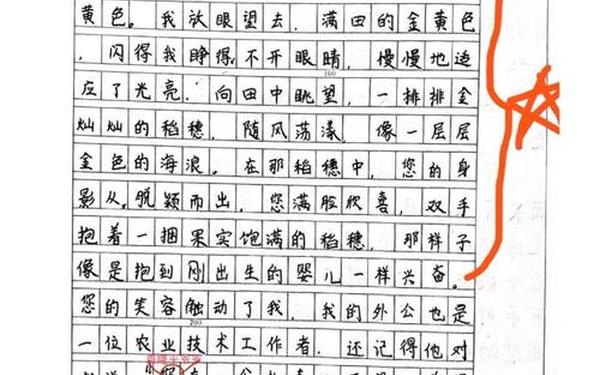 黄色。我放眼望去，满田的金黄色
，闪得我睁得不开眼睛，慢慢地适
100
应了光亮。向田中眺望，一排排金
灿灿的稻穗，随风荡漾，像一层层
金色的海浪。在那稻穗中，您的身
影从，脱颖而出，您满脸欣喜，双手
抱着一捆果实饱满的稻穗，那样子
像是抱到刚出生的婴儿一样兴奋。
您的笑容触动了我，我的外公也是
200
一位农业技术工作者，还记得他对